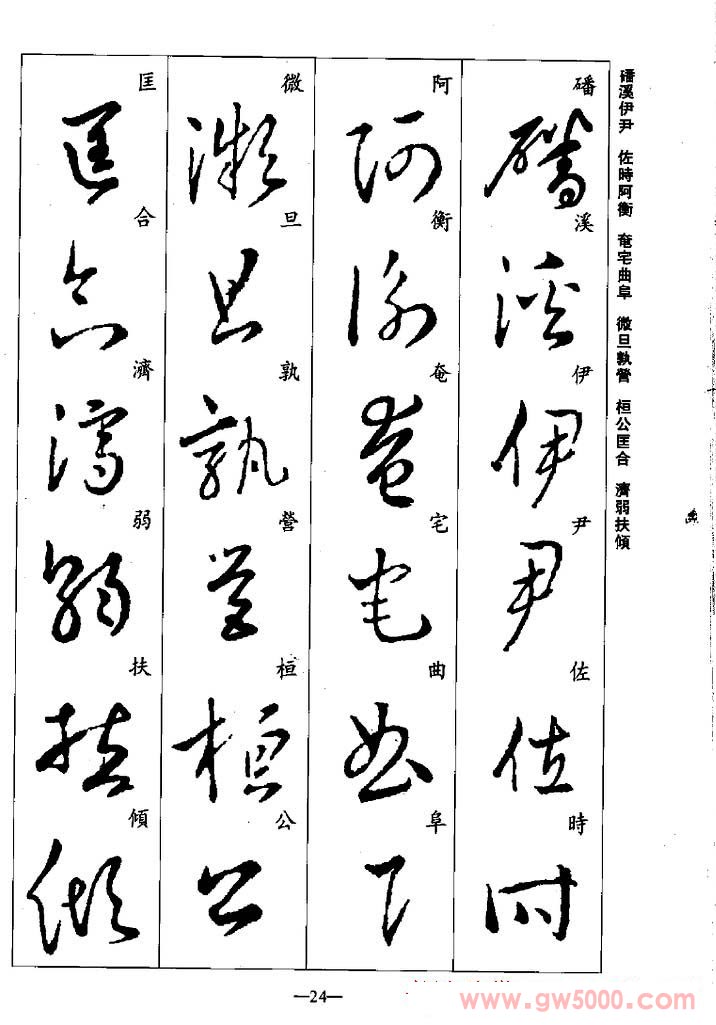 磻溪伊尹 佐時阿衡 奄宅曲阜 微旦孰營 桓公匡合 濟弱扶傾
磻溪伊尹佐時
阿衡奄宅曲阜
微旦孰營桓公
匡合濟弱扶傾
—24—
www.gw5000.com